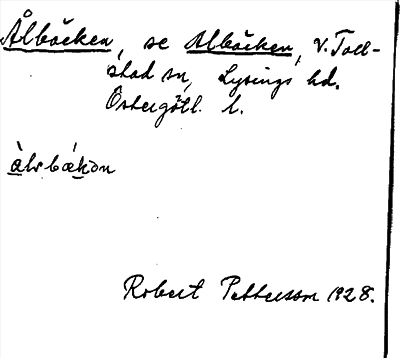 Ålbäcken, se Albäcken, V. Toll-
stad sn, Lysings hd.
Östergötl. l.
àlvbǽkən
Robert Pettersson 1928.